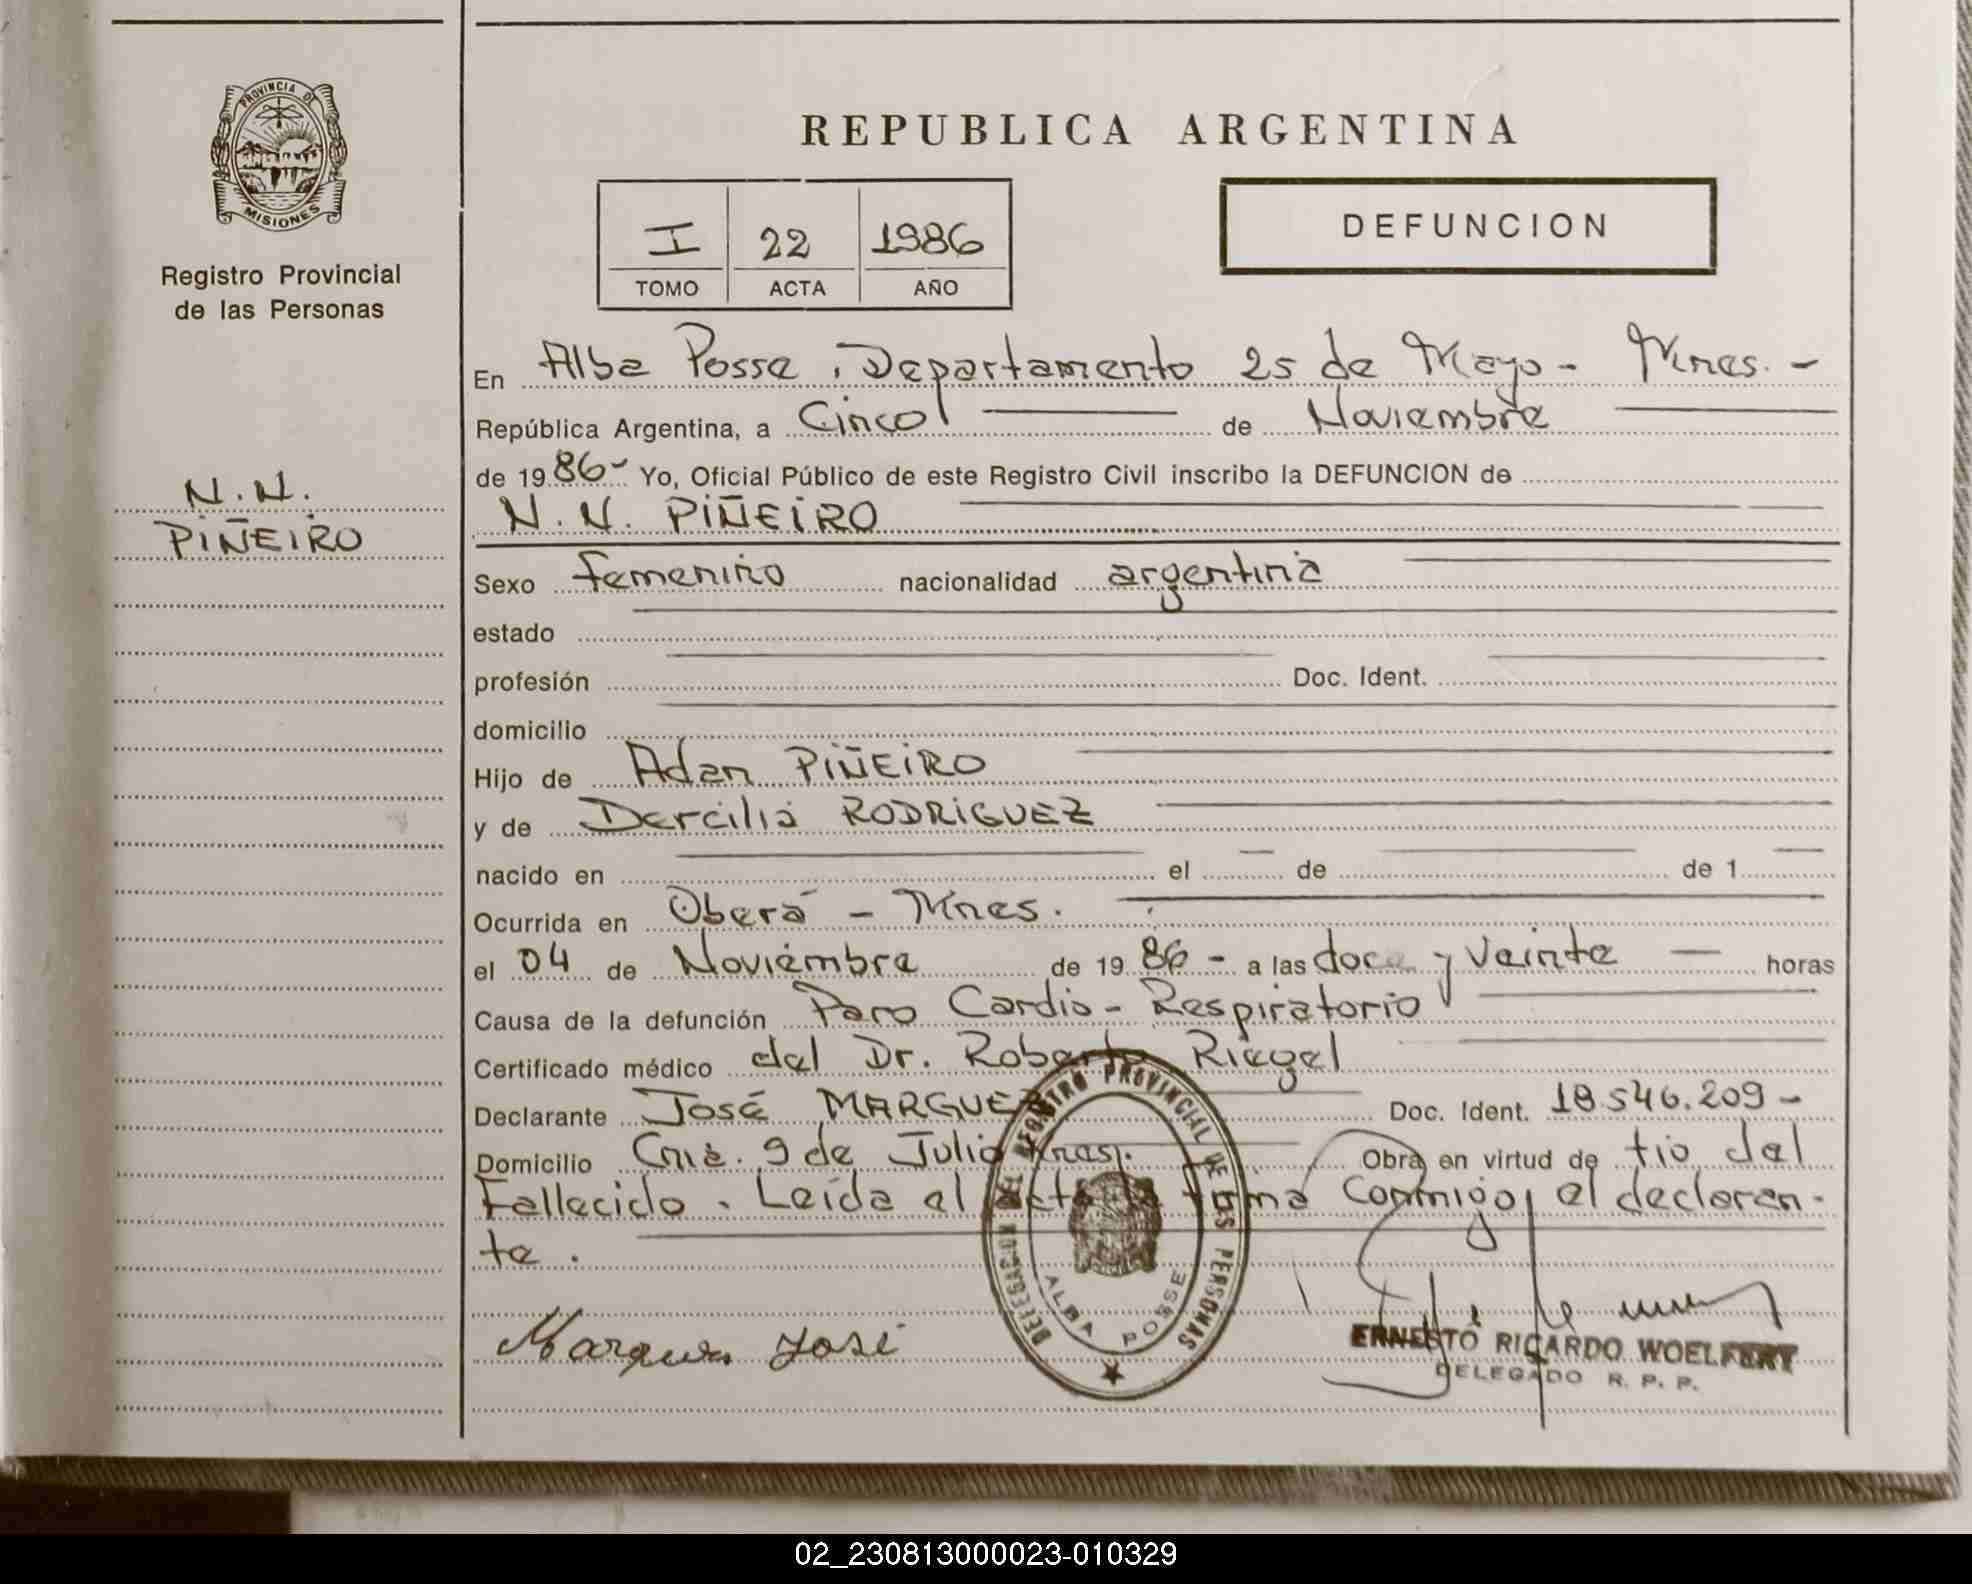 PROVINCIA DE
MISIONES
Registro Provincial
de las Personas
N.N.
PIÑEIRO
REPUBLICA ARGENTINA
I 22 1986
TOMO ACTA AÑO
DEFUNCION
En Alba Posse, Departamento 25 de Mayo - Mnes. -
República Argentina, a Cinco de Noviembre
de 19 86- Yo, Oficial Público de este Registro Civil inscribo la DEFUNCION de
N. N. PIÑEIRO
Sexo femenino nacionalidad argentina
estado
profesión Doc. Ident.
domicilio
Hijo de Adan PIÑEIRO
y de Darcilia RODRIGUEZ
nacido en el de de 1
Ocurrida en Oberá - Mnes.
el 04 de Noviembre de 19 86 - a las doce y veinte horas
Causa de la defunción Paro Cardio-Respiratorio
Certificado médico del Dr. Roberto Riegel
Declarante José MARGUES Doc. Ident. 18.546.209 -
Domicilio Cnia. 9 de Julio Mnes. Obra en virtud de tio del
Fallecido. Leída el acta la firma conmigo, el declaran-
te.
DELEGACION DEL REGISTRO PROVINCIAL DE LAS PERSONAS
ALBA POSSE
Marques José
ERNESTO RICARDO WOELFERT
DELEGADO R. P. P.
02_230813000023-010329